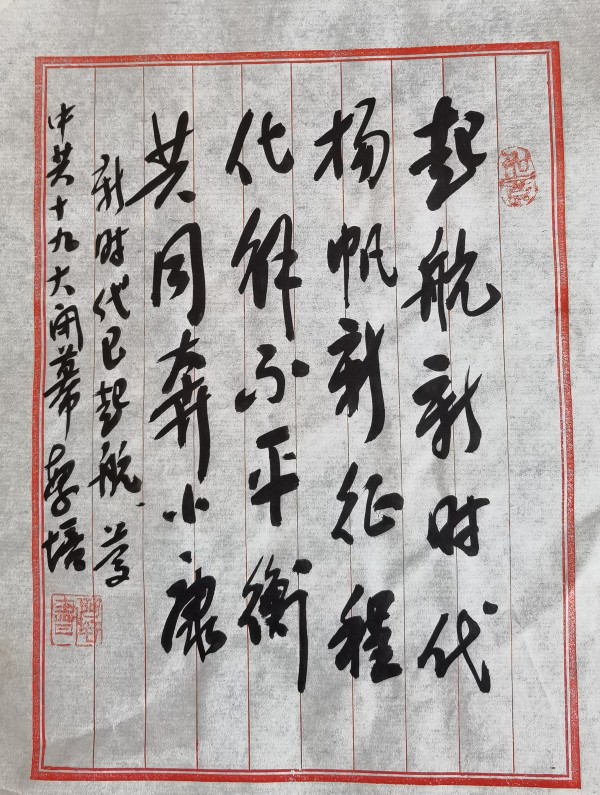 起航新时代
杨帆新征程
化解不平衡
共同奔小康
新时代已起航、
中共十九大开幕 李培